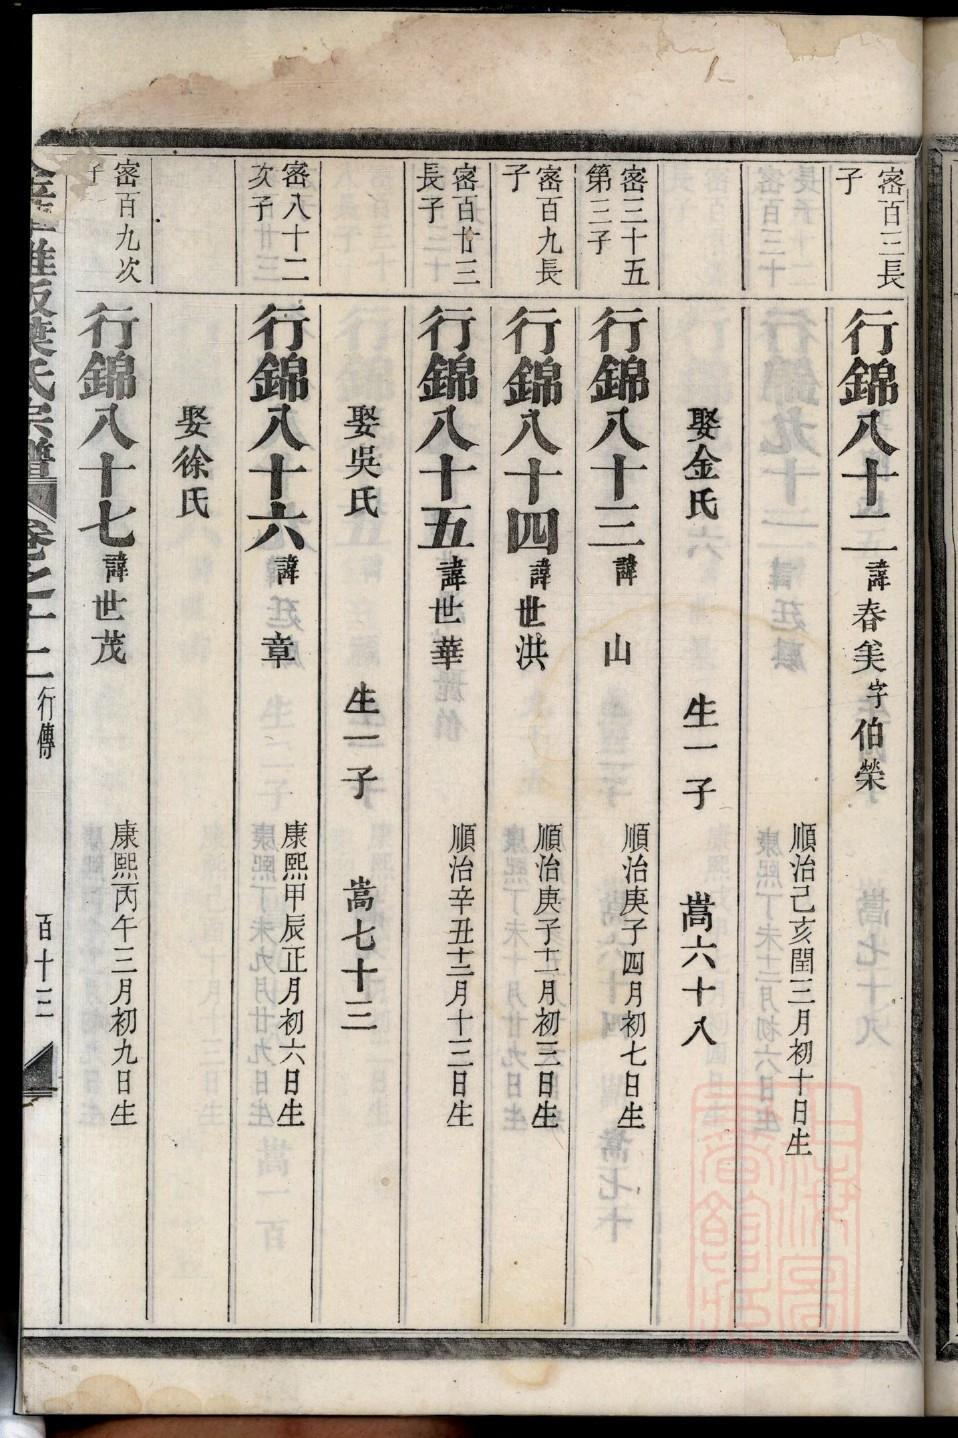 密百三長
子
行錦八十二諱春美字伯榮
順治己亥閏三月初十日生
娶金氏 生一子 嵩六十八
密三十五
第三子
行錦八十三諱 山
順治庚子四月初七日生
密百九長
子
行錦八十四諱世洪
順治庚子十一月初三日生
密百廿三
長子
行錦八十五諱世華
順治辛丑十二月十三日生
娶吳氏 生一子 嵩七十三
密八十二
次子
行錦八十六諱 章
康熙甲辰正月初六日生
娶徐氏
密百九次
子
行錦八十七諱世茂
康熙丙午三月初九日生
葉氏宗譜 卷之十二 行傳 百十三